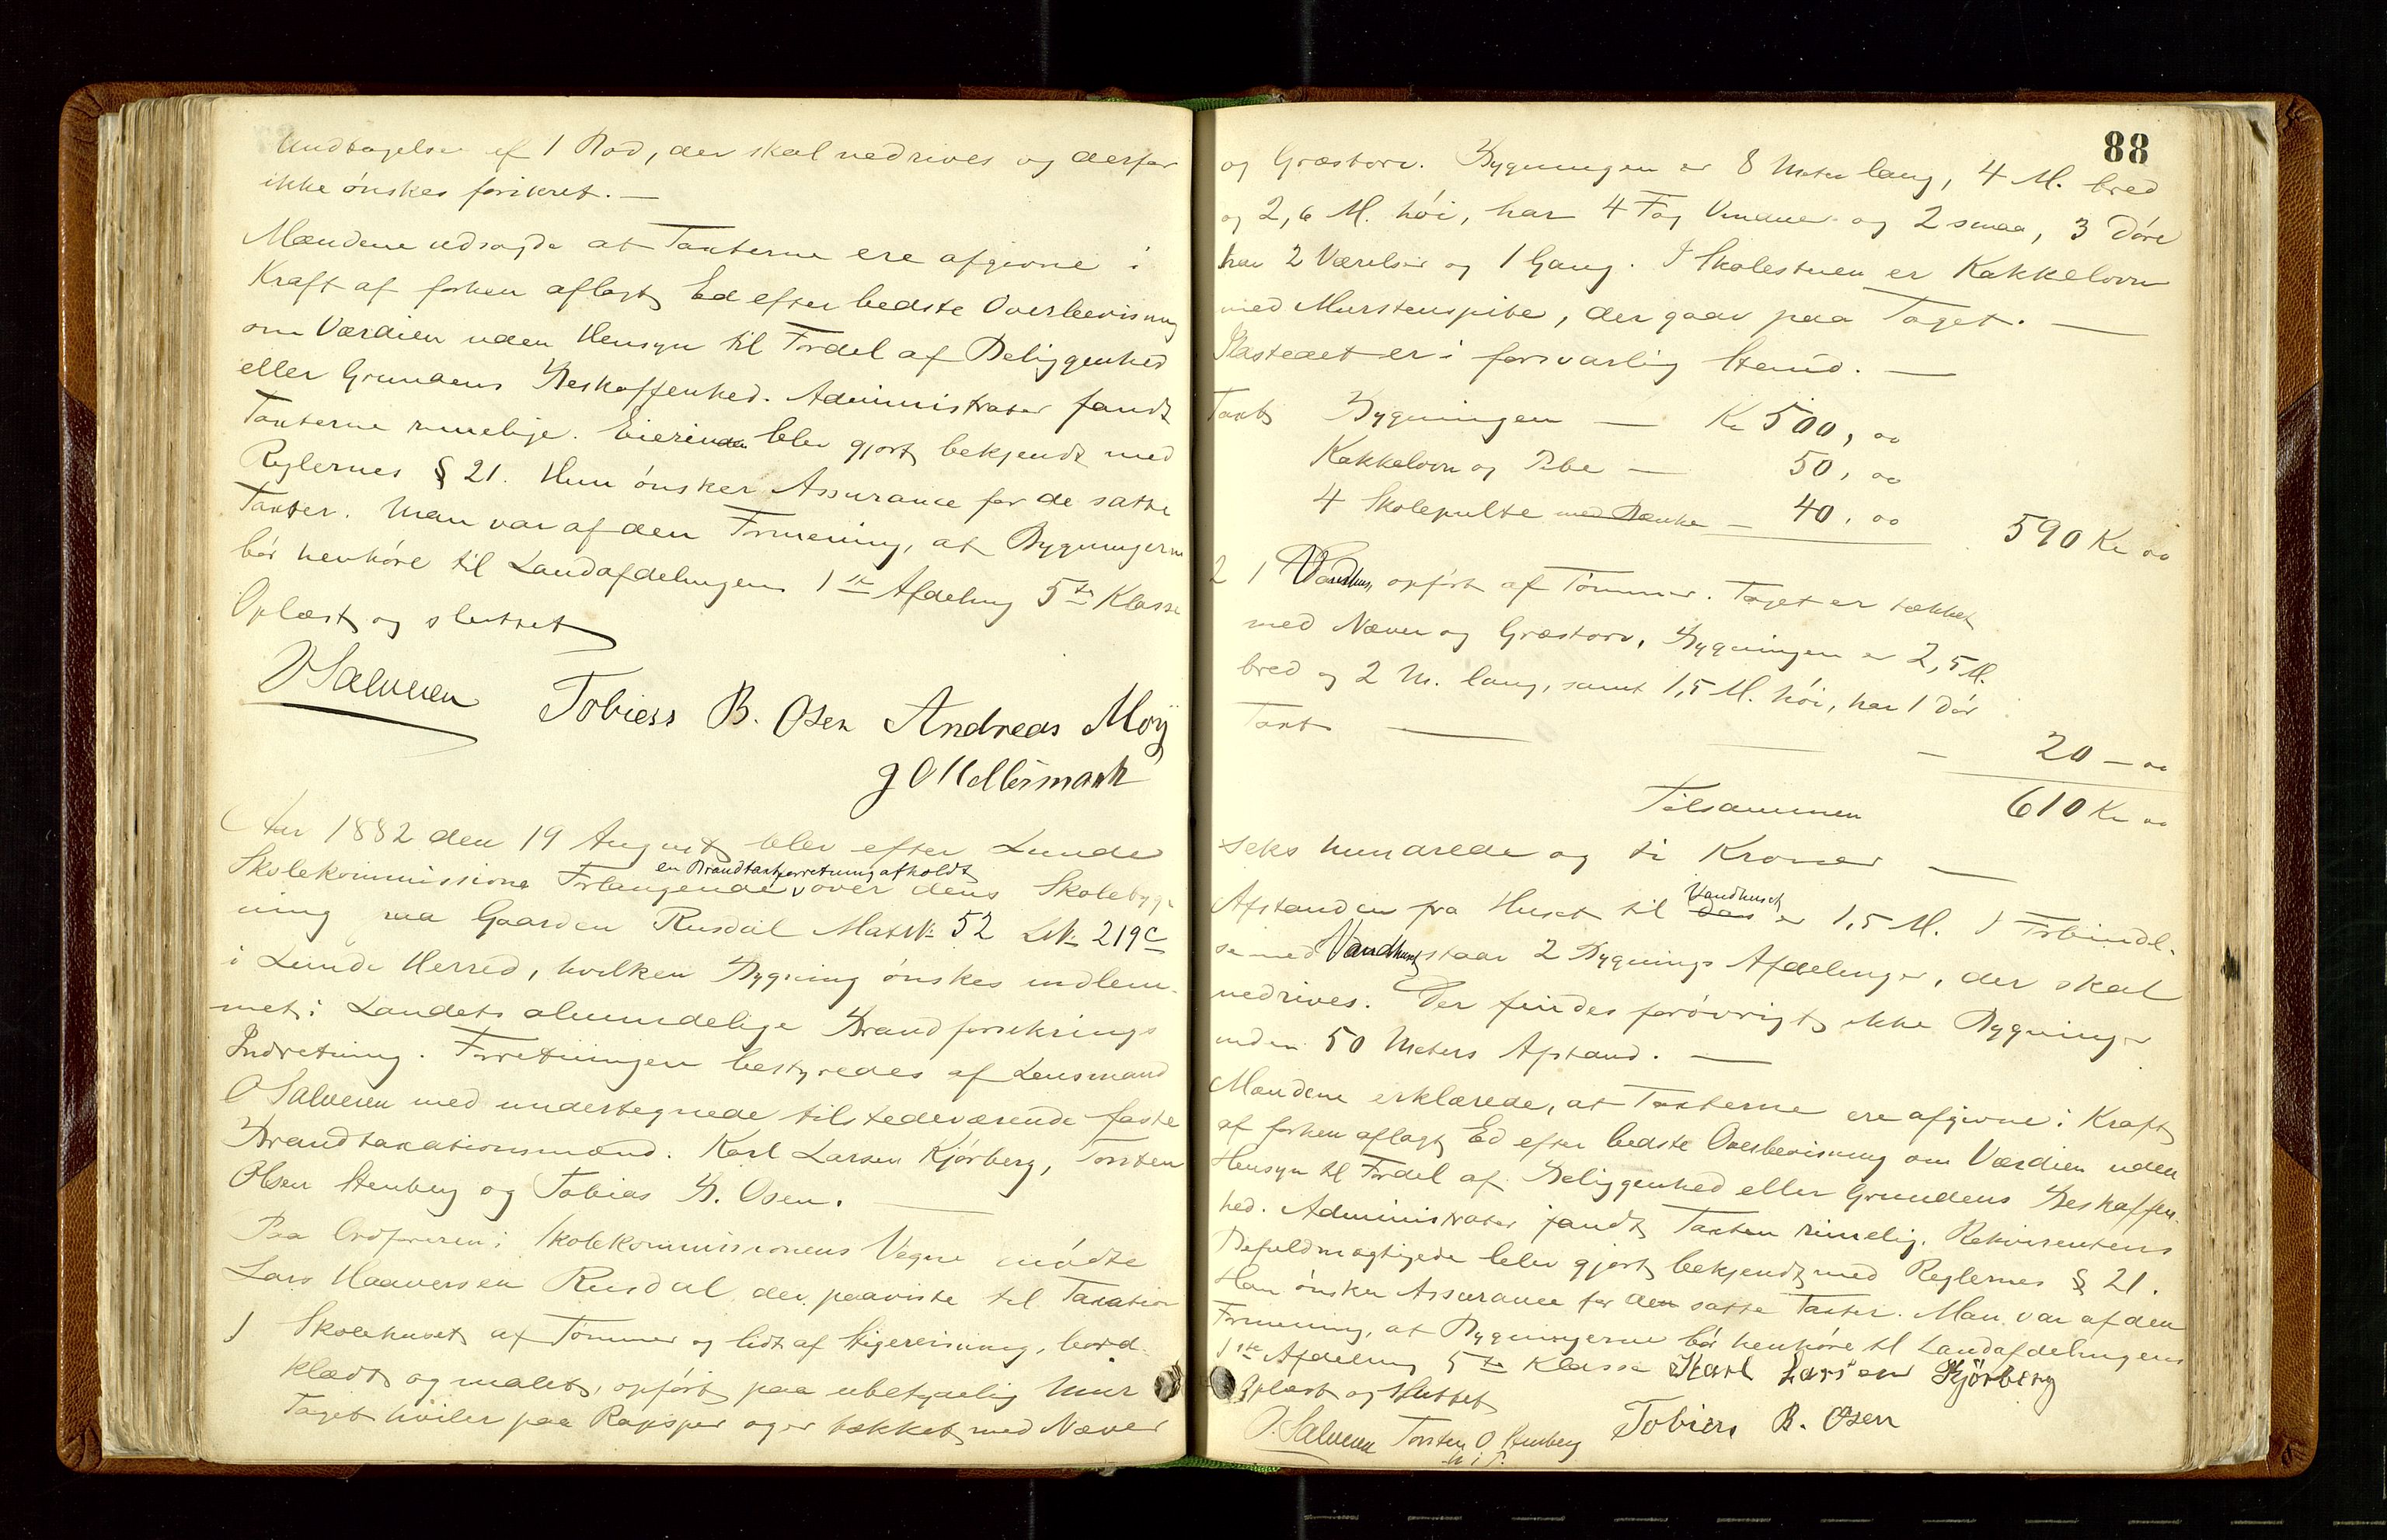 Undtagelse af 1 Bod, der skal nedrives og derfor
ikke ønskes forsikret. —
Mændene udsagde at Taxterne ere afgivne i
Kraft af forhen aflagt Ed efter bedste Overbevisning
om Værdien uden Hensyn til Fordel af Beliggenhed
eller Grundens Beskaffenhed. Administrator fandt
Taxterne rimelige. Eierinden blev gjort bekjendt med
Reglernes § 21. Hun ønsker Assurance for de satte
Taxter. Man var af den Formening, at Bygningerne
bør henhøre til Landafdelingens 1ste Afdeling 5te Klasse
Oplæst og sluttet
O Salvesen Tobias B. Osen Andreas Moÿ
Aar 1882 den 19 August blev efter Lunde
en Brandtaxtforretning afholdt
Skolekommissions Forlangende, over dens Skolebyg-
ning paa Gaarden Rusdal Mat№ 52 L№ 219c
i Lunde Herred, hvilken Bygning ønskes indlem-
met i Landets almindelige Brandforsikrings
Indretning. Forretningen bestyredes af Lensmand
O Salvesen med undertegnede tilstedeværende faste
Brandtaxationsmænd. Karl Larsen Kjørberg, Torsten
Olsen Stenberg og Tobias B. Osen. —
Paa Ordføreren i Skolekommissionens Vegne mødte
Lars Haaversen Rusdal, der paaviste til Taxation
1 Skolehuset af Tømmer og lidt af Stigereisning, bord-
klædt og malet, opført paa ubetydelig Mur
Taget hviler paa Raasper og er tækket med Næver
88
og Græstorv. Bygningen er 8 Meter lang, 4 M. bred
og 2,6 M. høi, har 4 Fag Vinduer og 2 smaa, 3 Døre
har 2 Værelser og 1 Gang. I Skolestuen er Kakkelovn
med Murstenspibe, der gaar paa Taget. —
Ildstedet er i forsvarlig Stand. —
Taxt Bygningen — Kr 500, 00
Kakkelovn og Pibe — 50, 00
4 Skolepulte med Bænke — 40, 00 590 Kr 00
2 1 Vandhus, opført af Tømmer. Taget er tækket
med Næver og Græstorv, Bygningen er 2,5 M.
bred og 2 M. lang, samt 1,5 M. høi, har 1 Dør
Taxt — — — 20 — 00
Tilsammen 610 Kr 00
seks hundrede og ti Kroner —
Vandhuset
Afstanden fra Huset til den er 1,5 M. I Forbindel-
se med Vandhuset staar 2 Bygnings Afdelinger, der skal
nedrives. Der findes forøvrigt ikke Bygninger
inden 50 Meters Afstand. —
Mændene erklærede, at Taxterne ere afgivne i Kraft
af forhen aflagt Ed efter bedste Overbevisning om Værdien uden
Hensyn til Fordel af Beliggenhed eller Grundens Beskaffen-
hed. Administrator fandt Taxten rimelig. Rekvirentens
Befuldmægtigede blev gjort bekjendt med Reglernes § 21.
Han ønsker Assurance for den satte Taxter. Man var af den
Formening, at Bygningerne bør henhøre til Landafdelingens
1ste Afdeling 5te Klasse Karl Larsen Kjørberg
Oplæst og sluttet
O. Salvesen Torsten O Stenberg Tobias B. Osen